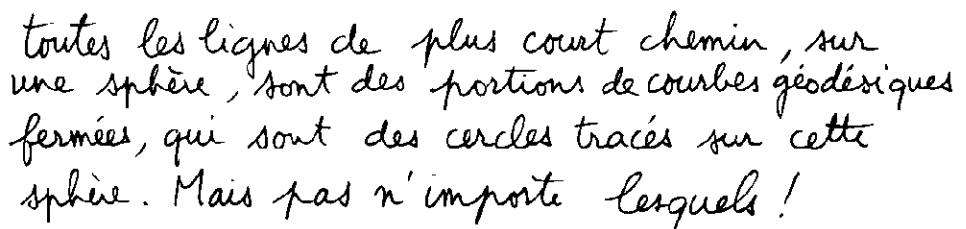 toutes les lignes de plus court chemin, sur
une sphère, sont des portions de courbes géodésiques
fermées, qui sont des cercles tracés sur cette
sphère. Mais pas n'importe lesquels !